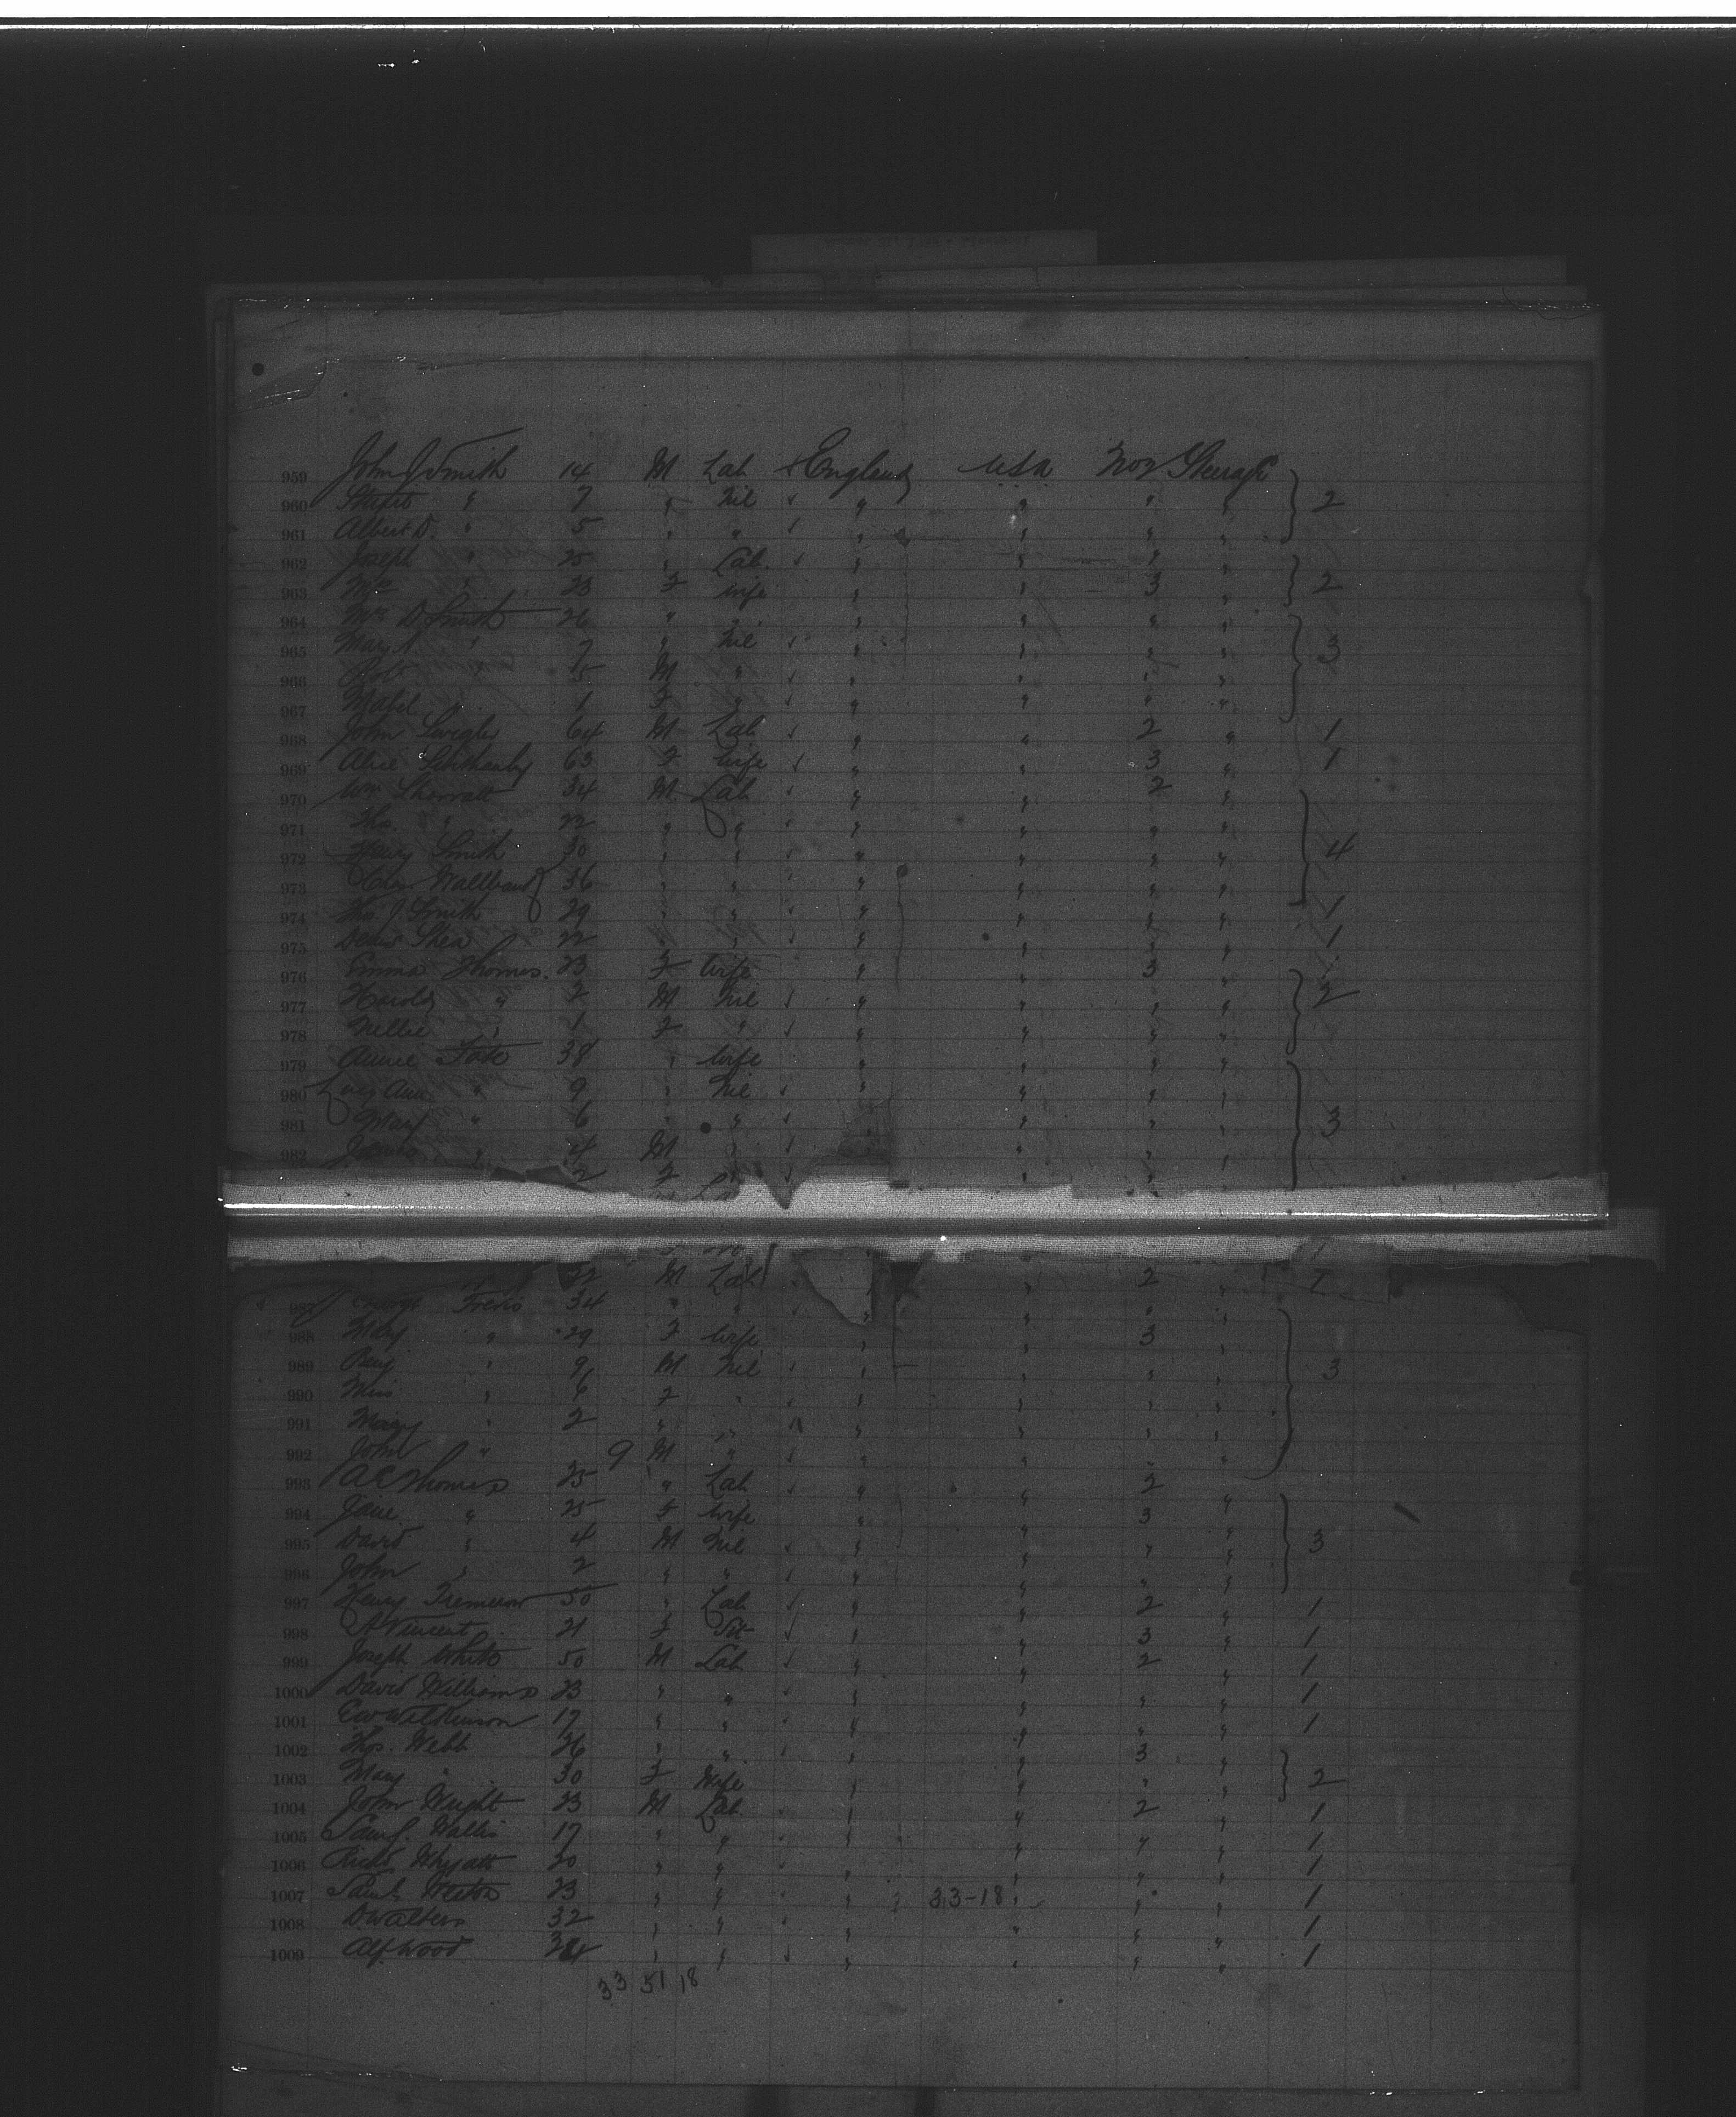 959 John J Smith 14 M Lab England USA No 2 Steerage
960 " 7 " Nil " " " " 2
961 Albert D. " 5 " " " " " "
962 Joseph " 25 " Lab. " " " "
963 Mrs " 23 F wife " " 3 " 2
964 Mrs D Smith 26 " " " " " "
965 Mary A " 7 " Nil " " " " 3
966 Robt " 5 M " " " " "
967 Mabel " 1 F " " " " "
968 John 64 M Lab " " 2 " 1
969 Alice 63 F Wife " " 3 " 1
970 Wm Sherratt 34 M Lab " " 2 "
971 Thos. " 22 " " " " " "
972 Henry Smith 30 " " " " " " 4
973 36 " " " " " "
974 Thos J Smith 29 " " " " " " 1
975 Denis Shea 22 " " " " " " 1
976 Emma Thomas. 23 F Wife " " 3 "
977 Harold " 2 M Nil " " " " 2
978 Nellie " 1 F " " " " "
979 Annie 38 " Wife " " " "
980 Lucy Ann " 9 " Nil " " " "
981 Mary " 6 " " " " " " 3
982 James " 4 M " " " " "
2 F " " " " "
22 M Lab " 2 " 1
987 George 34 " " " " " "
988 Mary " 29 F Wife " " 3 "
989 Benj " 9 M Nil " " " " 3
990 Miss " 6 F " " " " "
991 Mary " 2 " " " " " "
992 John " 9 M " " " " "
993 A C Thomas 25 " Lab " " 2 "
994 Jane " 25 F Wife " " 3 "
995 David " 4 M Nil " " " " 3
996 John " 2 " " " " " "
997 Henry 50 " Lab " " 2 " 1
998 A Vincent 21 F " " 3 " 1
999 Joseph White 50 M Lab " " 2 " 1
1000 David Williams 23 " " " " " " 1
1001 Wilkinson 17 " " " " " " 1
1002 Thos. Webb 26 " " " " 3 "
1003 Mary " 30 F Wife " " " " 2
1004 John Wright 23 M Lab " " 2 " 1
1005 Saml. Wallis 17 " " " " " " 1
1006 Richd Whyatt 20 " " " " " " 1
1007 Saml. Weston 23 " " " 33-18 " " " 1
1008 D Walters 32 " " " " " " 1
1009 Alf Wood " " " " " " 1
33 51 18